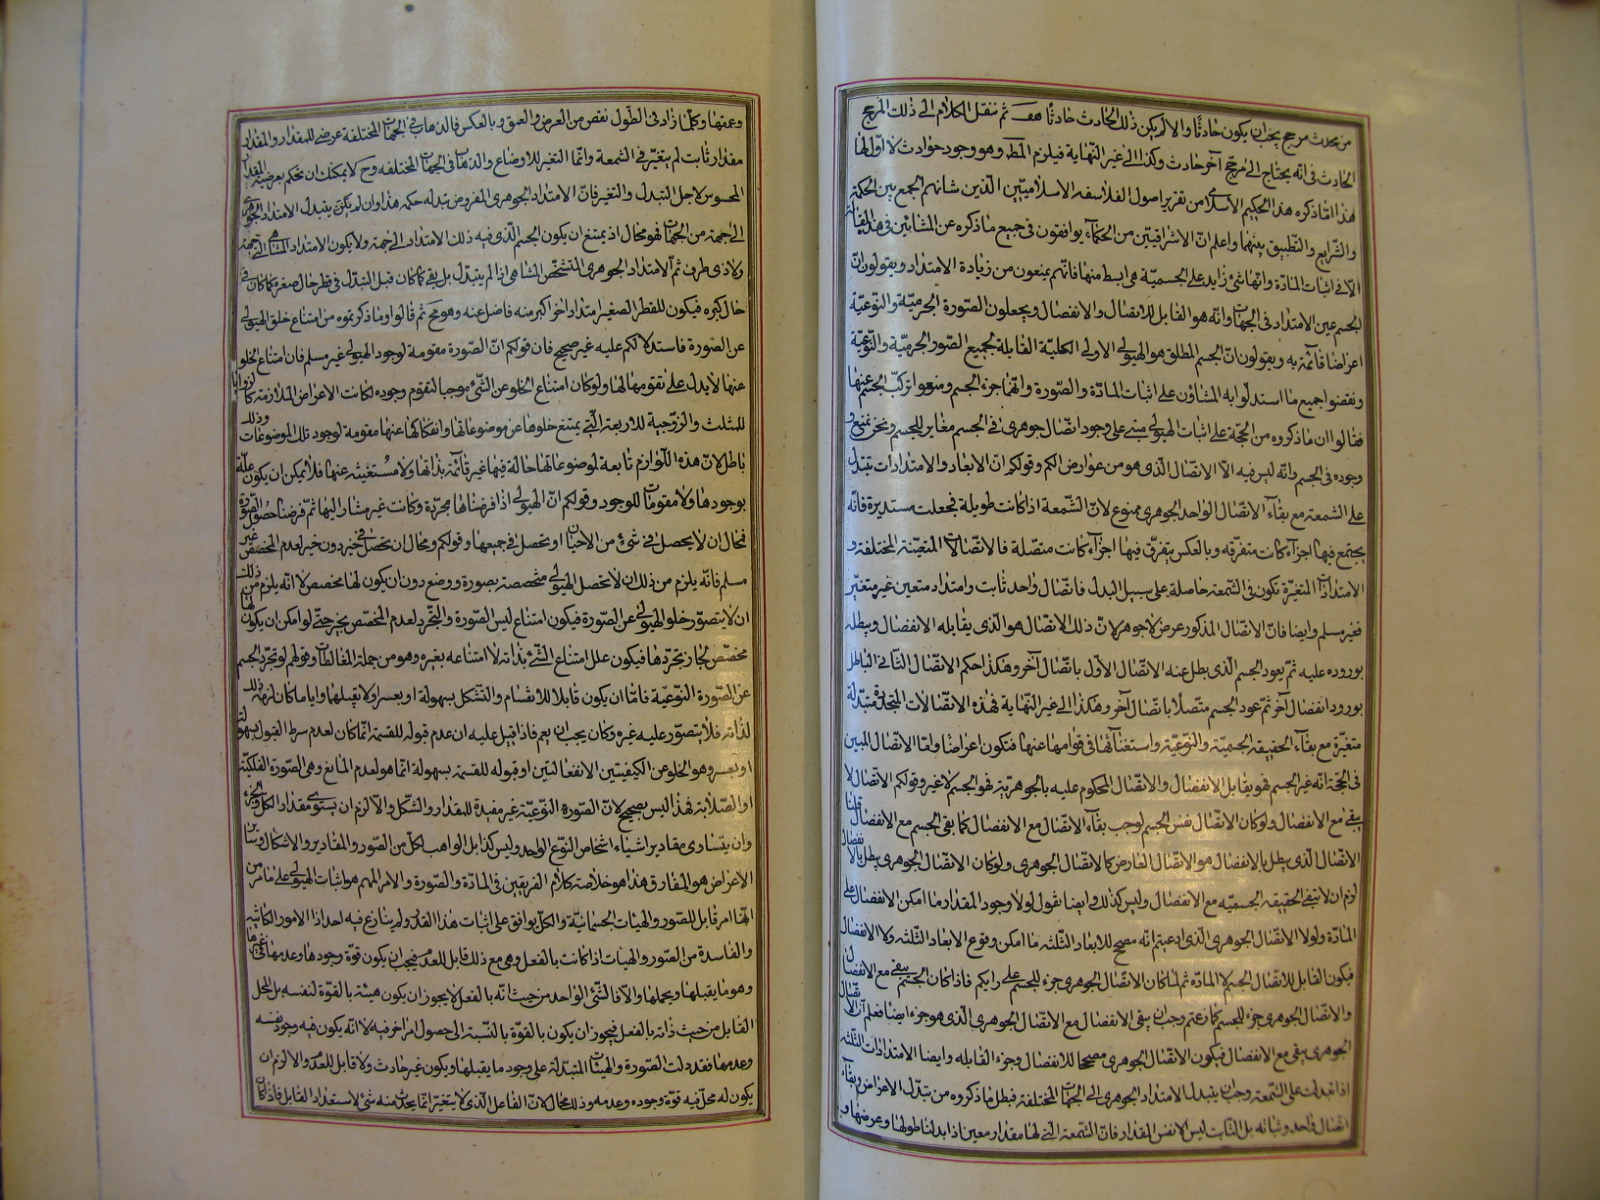 من يحدث مرجح يجب ان يكون حادثًا والا لم يكن ذلك الحادث حادثًا هف ثم ننقل الكلام الى ذلك المرجح
الحادث فى انّه يحتاج الى مرجّح آخر حادث وكذا الى غير النهاية فيلزم المط وهو وجود حوادث لا اوّل لها
هذا ما ذكره هذا الحكيم الاسلامى من تقرير اصول الفلاسفه الاسلاميّين الّذين شانهم الجمع بين الحكمة
والشرايع والتطبيق بينهما واعلم انّ الاشراقيّين من الحكمآء يوافقون فى جميع ما ذكره عن المشائين فى هذا
الّا فى اثبات المادّة وانّها شئ زايد على الجسميّة هى ابسط منها فانّهم يمنعون من زيادة الامتداد ويقولون انّ
الجسم عين الامتداد فى الجهات وانّه هو القابل للاتصال والانفصال ويجعلون الصّورة الجرميّة والنّوعيّة
اعراضا قآئمة به ويقولون انّ الجسم المطلق هو الهيولى الاولى الكليّة القابلة لجميع الصّور الجرميّة والنّوعيّة
ونقضوا جميع ما استدلوا به المشاؤن على اثبات المادّة والصّورة وانّهما جزء الجسم ومنعوا تركّب الجسم عنهما
فقالوا ان ما ذكروه من الحجّة على اثبات الهيولى مبنى على وجود اتصال جوهرى فى الجسم مغاير للجسم ونحن نمنع
وجوده فى الجسم وانّه ليس فيه الّا الاتّصال الّذى هو من عوارض الكم وقولكم انّ الابعاد والامتدادات تتبدّل
على الشمعة مع بقآء الاتّصال الواحد الجوهرى ممنوع لانّ الشّمعة اذا كانت طويلة فجعلت مستديرة فانّه
يجتمع فيها اجزآء كانت متفرّقه وبالعكس يتفرّق فيها اجزآء كانت متّصلة فالاتّصالات المتعيّنة المختلفة و
الامتدادات المتغيّرة تكون فى الشّمعة حاصلة على سبيل البدل فاتّصال واحد ثابت وامتداد متعين غير متغيّر
فغير مسلم وايضا فانّ الاتصال المذكور عرض لا جوهر لانّ ذلك الاتّصال هو الّذى يقابله الانفصال ويبطله
بوروده عليه ثمّ يعود الجسم الّذى بطل عنه الاتّصال الاوّل باتّصال آخر وهكذا حكم الاتّصال الثّانى الباطل
بورود انفصال آخر ثمّ عود الجسم متّصلًا باتّصال آخر وهكذا الى غير النّهاية فهذه الاتّصالات المتجدّدة متبدّلة
متغيّرة مع بقآء الحقيقه الجسميّة والنّوعيّة واستغنآئها فى قوامها عنها فتكون اعراضًا وامّا الاتّصال المبين
فى الحجّة انّه غير الجسم فهو يقابل الانفصال والاتّصال المحكوم عليه بالجوهريّة فهو الجسم لا غير وقولكم الاتّصال لا
يبقى مع الانفصال ولو كان الاتّصال نفس الجسم لوجب بقآء الاتّصال مع الانفصال كما بقى الجسم مع الانفصال قلنا
الاتّصال الّذى يبطل بالانفصال هو الاتّصال العارض لا الاتّصال الجوهرى ولو كان الاتّصال الجوهرى يبطل بالانفصال
لزم ان لا تبقى الحقيقه الجسميّه مع الانفصال وليس كذلك وايضا نقول لولا وجود المقدار ما امكن الانفصال على
المادّة ولولا الاتّصال الجوهرى الّذى ادعيتم انّه مصحح للابعاد الثّلثه ما امكن وقوع الابعاد الثّلثه ولا الانفصال
فيكون القابل للاتّصال الجسم لا المادّة ثم لما كان الاتّصال الجوهرى جزء للجسم على رايكم فاذا كان الجسم يبقى مع الانفصال
والاتّصال الجوهرى جزء للجسم كما زعمتم وجب ان يبقى الانفصال مع الاتّصال الجوهرى الّذى هو جزء ايضا فعلم انّ الاتّصال
الجوهرى يبقى مع الانفصال فيكون الاتّصال الجوهرى مصححا للانفصال وجزء القابله وايضا الامتدادات الثّلثه
اذا تبدلت على الشّمعة وجب ان يتبدل الامتداد الجوهرى الى الجهات المختلفة فبطل ما ذكروه من تبدّل الاعراض وبقآء
اتّصال واحد وثباته بل الثّابت ليس الا نفس المقدار فانّ الشّمعة الّتى لها مقدار معين اذا بدلنا طولها وعرضها و
وعمقها وكلّما زاد فى الطّول نقص من العرض والعمق وبالعكس فالذهاب فى الجهات المختلفة عرضى للمقدار والمقدار
مقدار ثابت لم يتغيّر فى الشّمعة وانّما التغير للاوضاع والذهاب فى الجهات المختلفه وح لا يمكنك ان تحكم بعرضية المقدار
المحسوس لاجل التبدل والتغير فانّ الامتداد الجوهرى المفروض تبدله حكمه هذا وان لم يكن يتبدل الامتداد الجوهرى
الى جهة من الجهات فهو محال اذ يمتنع ان يكون الجسم الّذى فيه ذلك الامتداد الى جهة ولا يكون الامتداد المتناهى الى جهة
ولا ذى طرف ثمّ الامتداد الجوهرى المتشخّص المتناهى اذا لم يتبدّل بل بقى كما كان قبل التبدّل فى قطر حال صغره كما كان فى
حال كبره فيكون للقطر الصغير امتداد آخر اكبر منه فاضل عنه وهو مح ثم قالوا وما ذكرتموه من امتناع خلق الهيولى
عن الصّورة فاستدلالكم عليه غير صحيح فان قولكم انّ الصّورة مقومة لوجود الهيولى غير مسلم فان امتناع الخلو
عنها لا يدل على تقومها لها ولو كان امتناع الخلو عن الشّئ موجبا لتقوم وجوده لكانت الاعراض الملازمة كالزوايا
للمثلث والزّوجية للاربعة الّتى يمتنع خلوها عن موضوعاتها وانفكاكها عنها مقومة لوجود تلك الموضوعات وذلك
باطل لانّ هذه اللّوازم تابعة لموضوعاتها حالة فيها غير قآئمة بذاتها ولا مستغنيه عنها فلا يمكن ان يكون علّة
بوجودها ولا مقومات للوجود وقولكم انّ الهيولى اذا فرضناها مجرّدة وكانت غير مشار اليها ثمّ فرضنا حصول الصّورة
فمحال ان لا يحصل فى شئ من الاحياز او تحصل فى جميعها وقولكم ومحال ان تحصل فى حيز دون حيز لعدم المخصص غير
مسلم فانّه يلزم من ذلك ان لا تحصل الهيولى متخصصة بصورة ووضع دون ان يكون لها مخصص لا انّه يلزم من ذلك
ان لا يتصوّر خلو الهيولى عن الصّورة فيكون امتناع لبس الصّورة والتجّرد لعدم المخصّص بخرج حتّى لو امكن ان يكون لها
مخصّص لجاز تجرّدها فيكون علل امتناع الشّئ بذاته لا امتناعه بغيره وهو من جملة المغالطات وقولهم لو تجرّد الجسم
عن الصّورة النّوعيّة فامّا ان يكون قابلا للانقسام والتّشكل بسهولة او بعسر او لا يقبلها وايا ما كان لزمه ذلك
لذاته فلا يتصوّر عليه غيره وكان يجب ان يعم فاذا قيل عليه ان عدم قبوله للقسمة انّما كان لعدم شرط القبول بسهولة
او بعسر وهو الخلو عن الكيفيتين الانفعاليتين او قبوله للقسمة بسهولة انّما هو لعدم المانع وهى الصّورة الفلكيّة
او الصّلابة فهذا ليس بصحيح لانّ الصّورة النّوعيّة غير مفيدة للمقدار والشّكل والّا لزم ان يستوى مقدار الكل والجزء
وان يتساوى مقادير اشياء اشخاص النّوع الواحد وليس كذا بل الواهب لكلّ من الصّور والمقادير والاشكال وساير
الاعراض هو المفارق هذا هو خلاصة كلام الفريقين فى المادّة والصّورة والامر المهم هو اثبات الهيولى على ما مر من
انّها امر قابل للصّور والهيئات الجسمانيّة والكلّ يوافق على اثبات هذا القدر ولم ينازع فيه احد اذ الامور الكائنة
والفاسدة من الصّور والهيئات اذا كانت بالفعل وهى مع ذلك قابل للعدم فيجب ان يكون قوّة وجودها وعدمها فى غيرها
وهو ما يقبلها ويحملها والّا فالشّئ الواحد من حيث انّه بالفعل لا يجوز ان يكون هيئة بالقوّة لنفسه بل المحل
القابل من حيث ذاته بالفعل فيجوز ان يكون بالقوّة بالنّسبة الى حصول امر آخر فيه لا انّه يكون فيه وجود نفسه
وعدمها فقد دلت الصّورة والهيئات المتبدّلة على وجود ما يقبلها ويكون غير حادث ولا قابل للعدم والّا لزم ان
يكون له محلّ فيه قوّة وجوده وعدمه وذلك محال لانّ الفاعل الّذى لا يتغيّر انّما يحدث منه شئ لاستعداد القابل فاذا كان